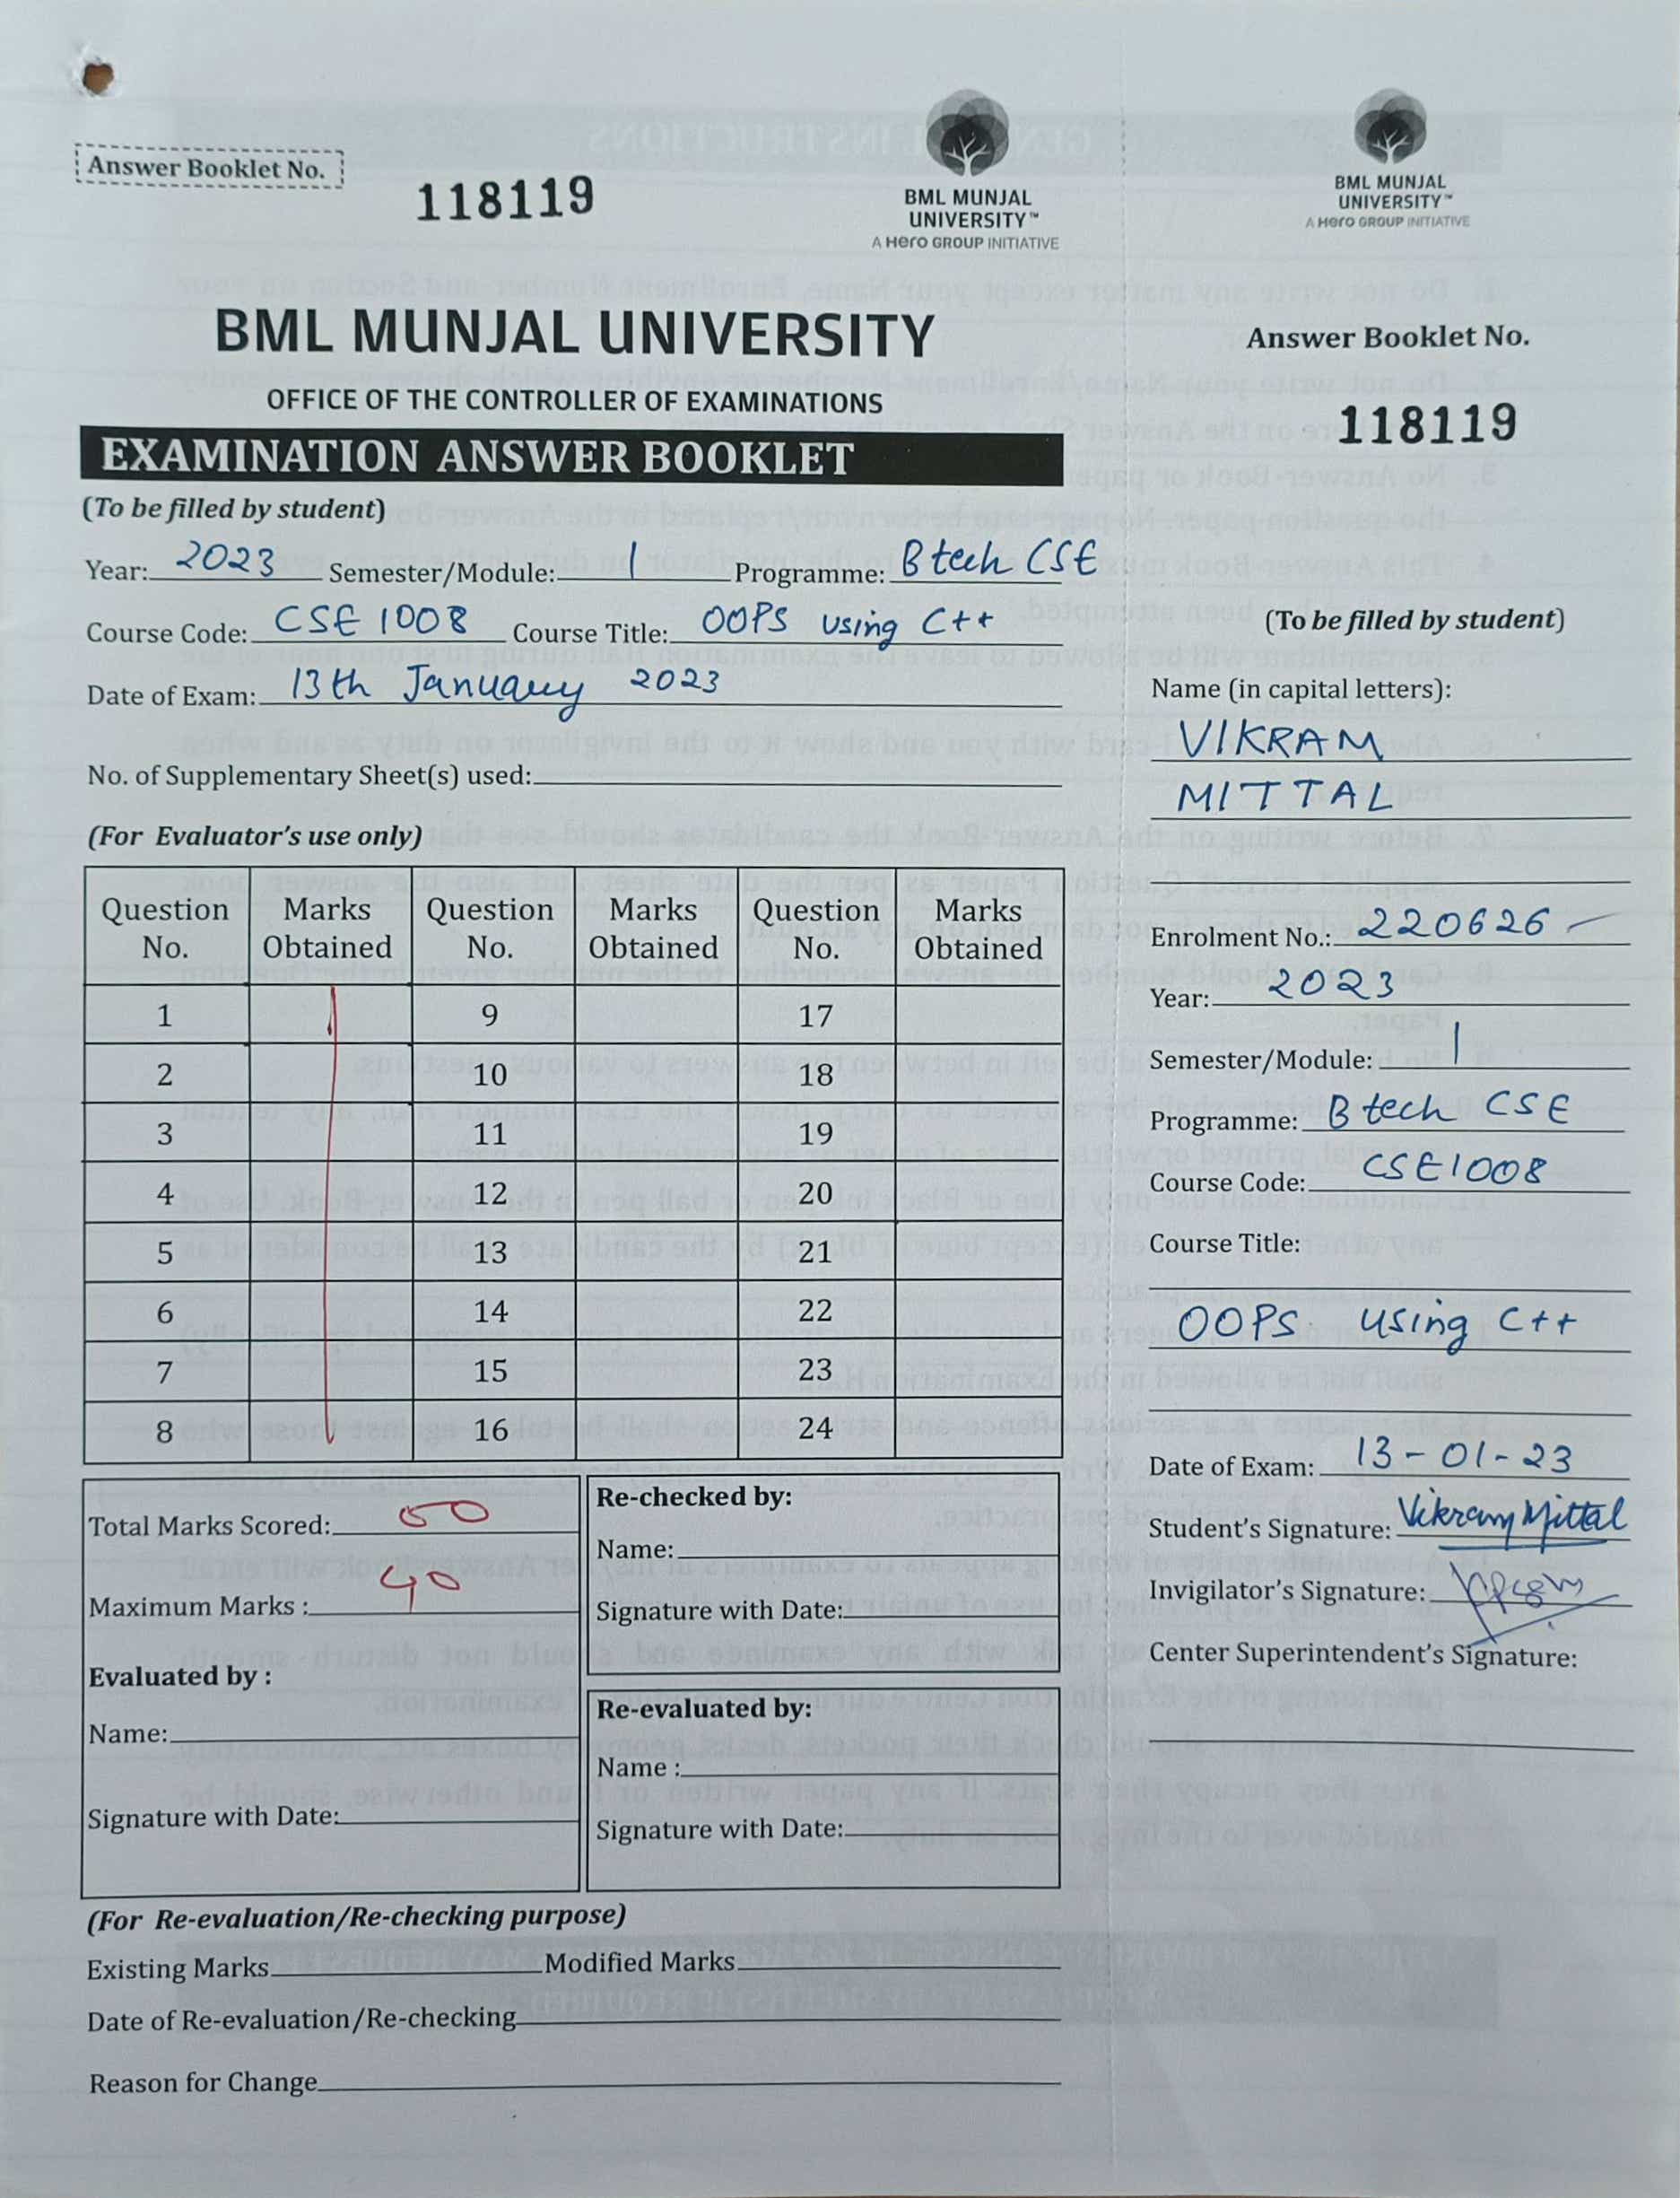 Answer Booklet No.
118119
BML MUNJAL
UNIVERSITY™
A Hero GROUP INITIATIVE
BML MUNJAL UNIVERSITY
OFFICE OF THE CONTROLLER OF EXAMINATIONS
EXAMINATION ANSWER BOOKLET
(To be filled by student)
Year: 2023 Semester/Module: 1 Programme: B tech CSE
Course Code: CSE 1008 Course Title: OOPS using C++
Date of Exam: 13th January 2023
No. of Supplementary Sheet(s) used:
(For Evaluator's use only)
Question No. Marks Obtained Question No. Marks Obtained Question No. Marks Obtained
1 9 17
2 10 18
3 11 19
4 12 20
5 13 21
6 14 22
7 15 23
8 16 24
Total Marks Scored: 50
Maximum Marks : 40
Evaluated by :
Name:
Signature with Date:
Re-checked by:
Name:
Signature with Date:
Re-evaluated by:
Name :
Signature with Date:
(For Re-evaluation/Re-checking purpose)
Existing Marks Modified Marks
Date of Re-evaluation/Re-checking
Reason for Change
BML MUNJAL
UNIVERSITY™
A Hero GROUP INITIATIVE
Answer Booklet No.
118119
(To be filled by student)
Name (in capital letters):
VIKRAM
MITTAL
Enrolment No.: 220626
Year: 2023
Semester/Module: 1
Programme: B tech CSE
Course Code: CSE1008
Course Title:
OOPS using C++
Date of Exam: 13-01-23
Student's Signature: Vikram Mittal
Invigilator's Signature:
Center Superintendent's Signature: